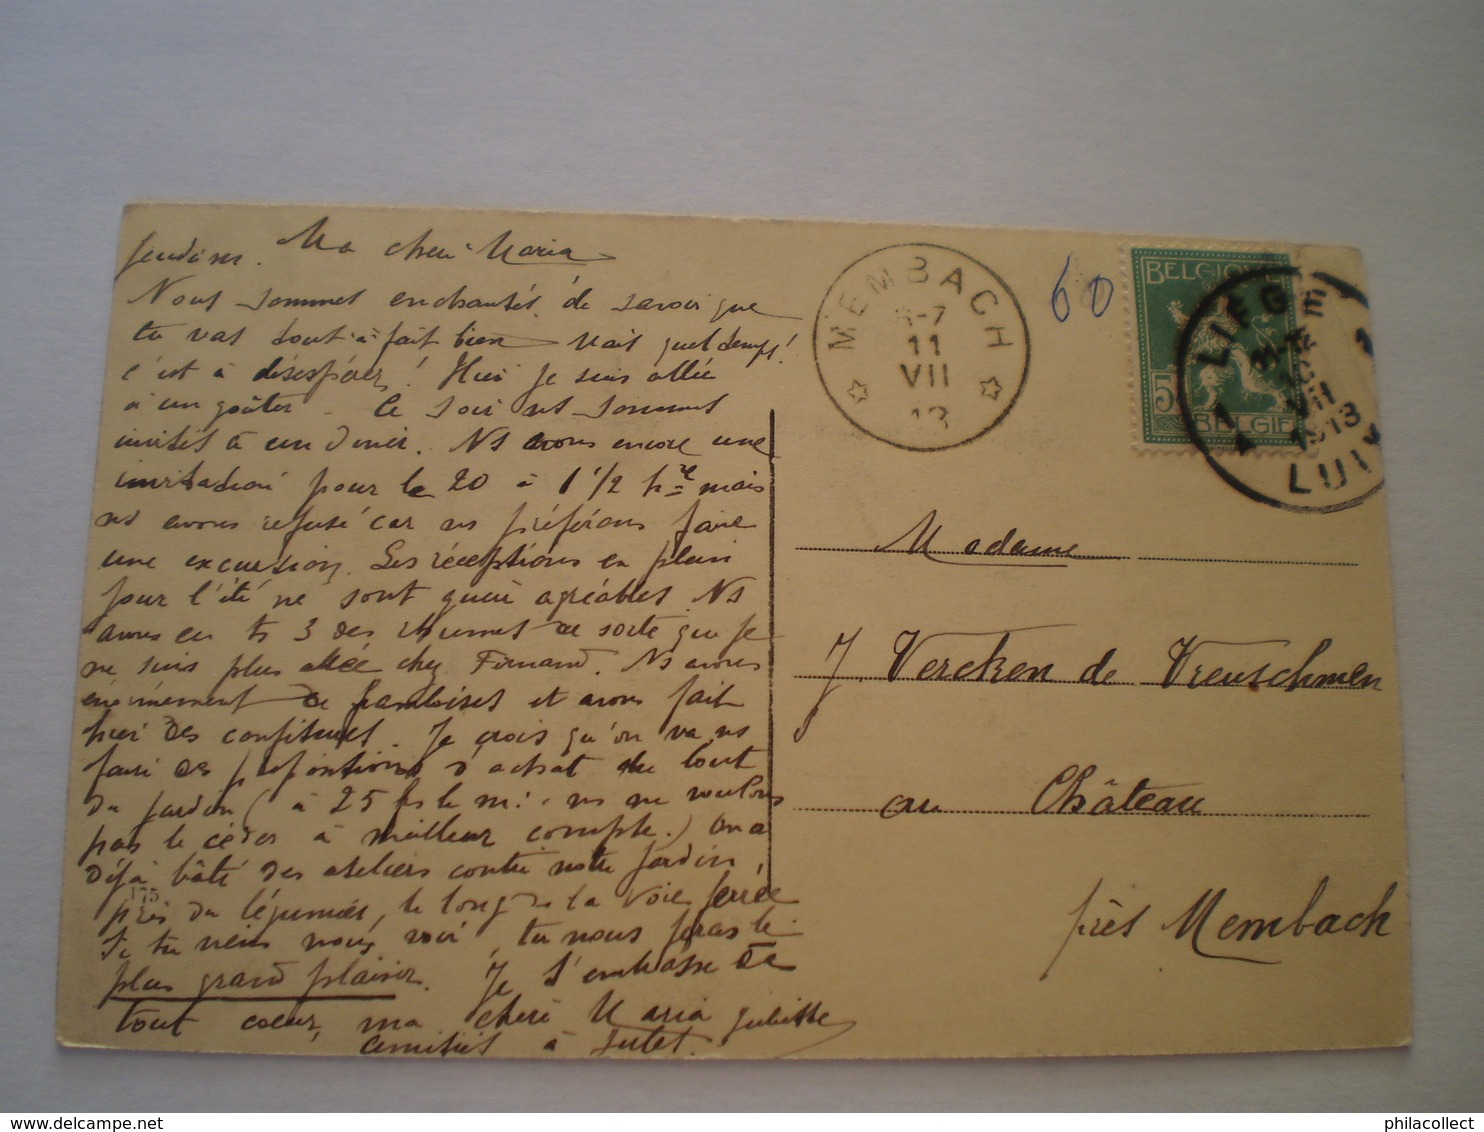 Jeudi m. Ma chère Maria
Nous sommes enchantés de savoir que
tu vas tout à fait bien Mais quel temps!
c'est à désespérer! Hier je suis allée
à un goûter. Ce soir ns sommes
invités à un diner. Ns avons encore une
invitation pour le 20 à 1 1/2 hre mais
ns avons refusé car ns préférons faire
une excursion. Les réceptions en plein
pour l'été ne sont guère agréables. Ns
avons eu ts 3 des rhumes de sorte que je
ne suis plus allée chez Fernand. Ns avons
énormément de framboises et avons fait
hier des confitures. Je crois qu'on va ns
faire des propositions d'achat du bout
du jardin (à 25 frs le m: ns ne voulons
pas le céder à meilleur compte.) On a
déjà bâti des ateliers contre notre jardin,
près du légumier, le long de la voie ferrée
Si tu viens nous voir, tu nous feras le
plus grand plaisir. Je t'embrasse de
tout coeur, ma chère Maria Juliette
Amitiés à
MEMBACH
6-7
11
VII
13
60
BELGIQUE
5
BELGIE
LIEGE
VII
1913
LUIK
Madame
J. Vercken de Vreuschmen
au Château
près Membach
175
philacollect